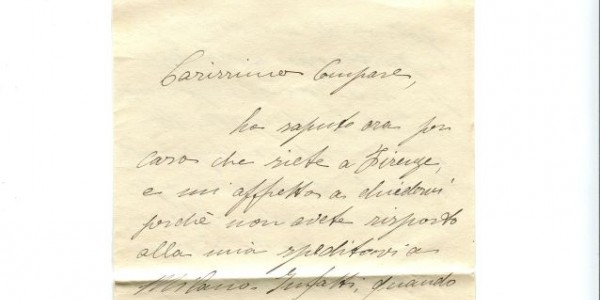 Carissimo Compare,
ho saputo ora per
caso che siete a Firenze,
e mi affretto a chiedervi
perchè non avete risposto
alla mia speditovi a
Milano. Infatti, quando